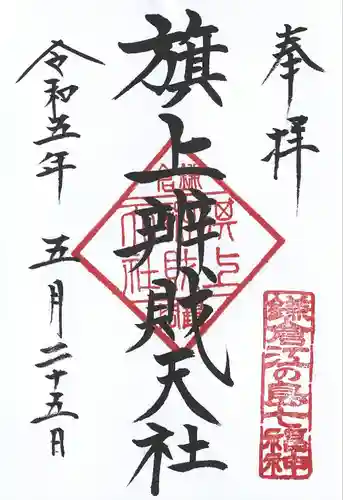 奉拝
鎌倉江の島七福神
旗上辨財天社
令和五年
五月二十五日